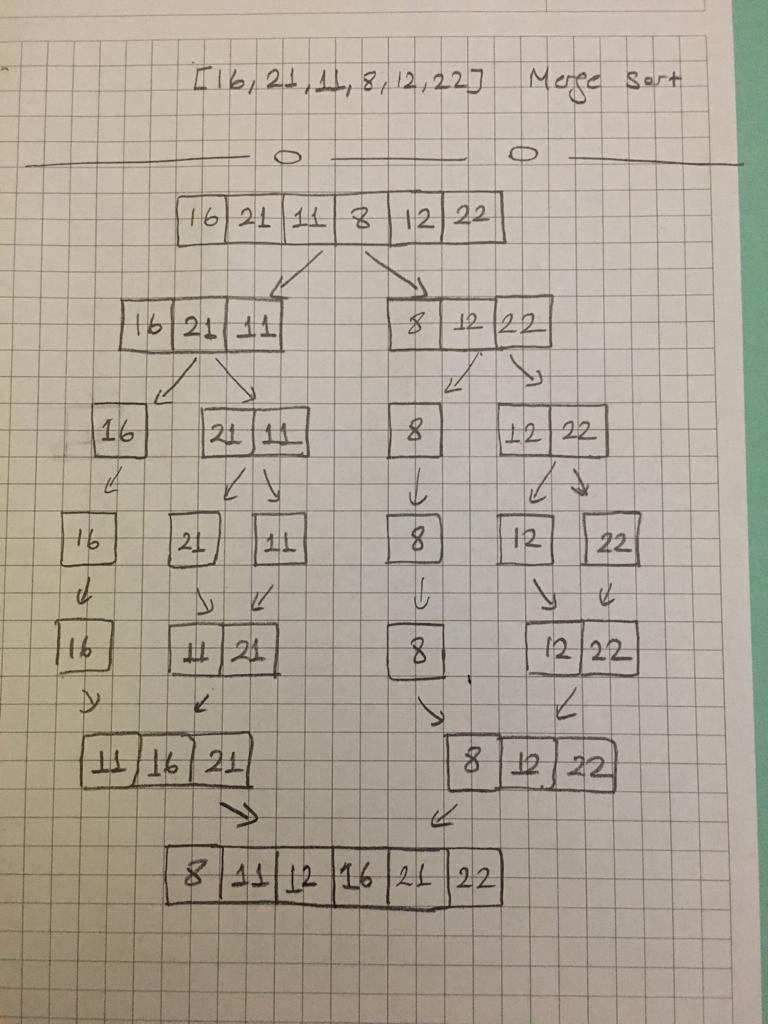 [16, 21, 11, 8, 12, 22] Merge Sort
16 21 11 8 12 22
16 21 11 8 12 22
16 21 11 8 12 22
16 21 11 8 12 22
16 11 21 8 12 22
11 16 21 8 12 22
8 11 12 16 21 22